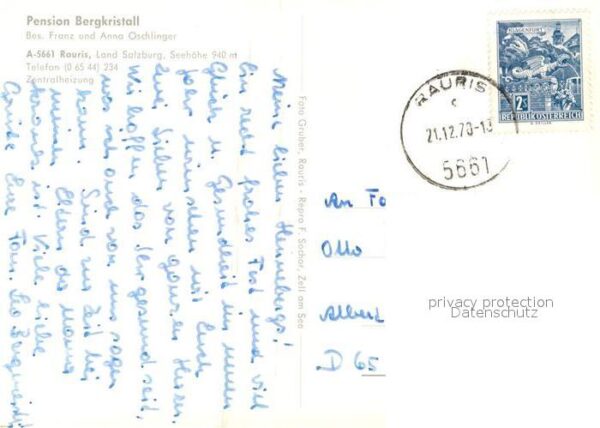 Pension Bergkristall
Bes. Franz und Anna Oschlinger
A-5661 Rauris, Land Salzburg, Seehöhe 940 m
Telefon (0 65 44) 234
Zentralheizung
Meine lieben Henneberg's!
Ein recht frohes Fest und viel
Glück u. Gesundheit im neuen
Jahr wünschen wir Euch
zwei Lieben von ganzem Herzen.
Wir hoffen das Ihr gesund seit,
was ich auch von uns sagen
kann. Sind zur Zeit bei
meinen Eltern da Mama
krank ist. Viele liebe
Grüße Eure Fam. Leo
Foto Gruber, Rauris - Repro F. Sochor, Zell am See
KLAGENFURT
2S
REPUBLIK ÖSTERREICH
RAURIS
c
21.12.70-13
5661
An Fa
Otto
Albert
D 65
privacy protection
Datenschutz